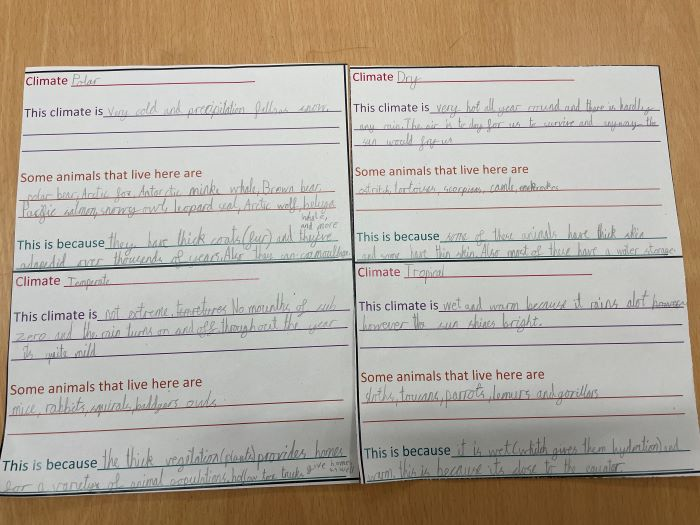 Climate Polar
This climate is Very cold and precipitation falls as snow.
Some animals that live here are
polar bear, Arctic fox, Antarctic minke whale, Brown bear,
Pacific salmon, snowy owl, leopard seal, Arctic wolf, beluga
whale,
and more
This is because they have thick coats (fur) and they've
adapted over thousands of years. Also they can
Climate Temperate
This climate is not extreme, No mounths of sub
zero and the rain turns on and off throughout the year
its quite mild
Some animals that live here are
mice, rabbits, squirals, baddgers owls
This is because the thick vegitation (plants) provides homes
for a variety of animal populations, hollow tree trunks give homes
as well
Climate Dry
This climate is very hot all year round and there is hardly
any rain. The air is to day for us to survive and anyway the
sun would fry us
Some animals that live here are
ostrich, tortoises, scorpions, camle,
This is because some of these animals have thick skin
and some have thin skin. Also most of these have a water storage.
Climate Tropical
This climate is wet and warm because it rains alot however
however the sun shines bright.
Some animals that live here are
sloths, toucans, parrots, lemurs and gorillars
This is because it is wet (whitch gives them hydration) and
warm, this is because its close to the equator.